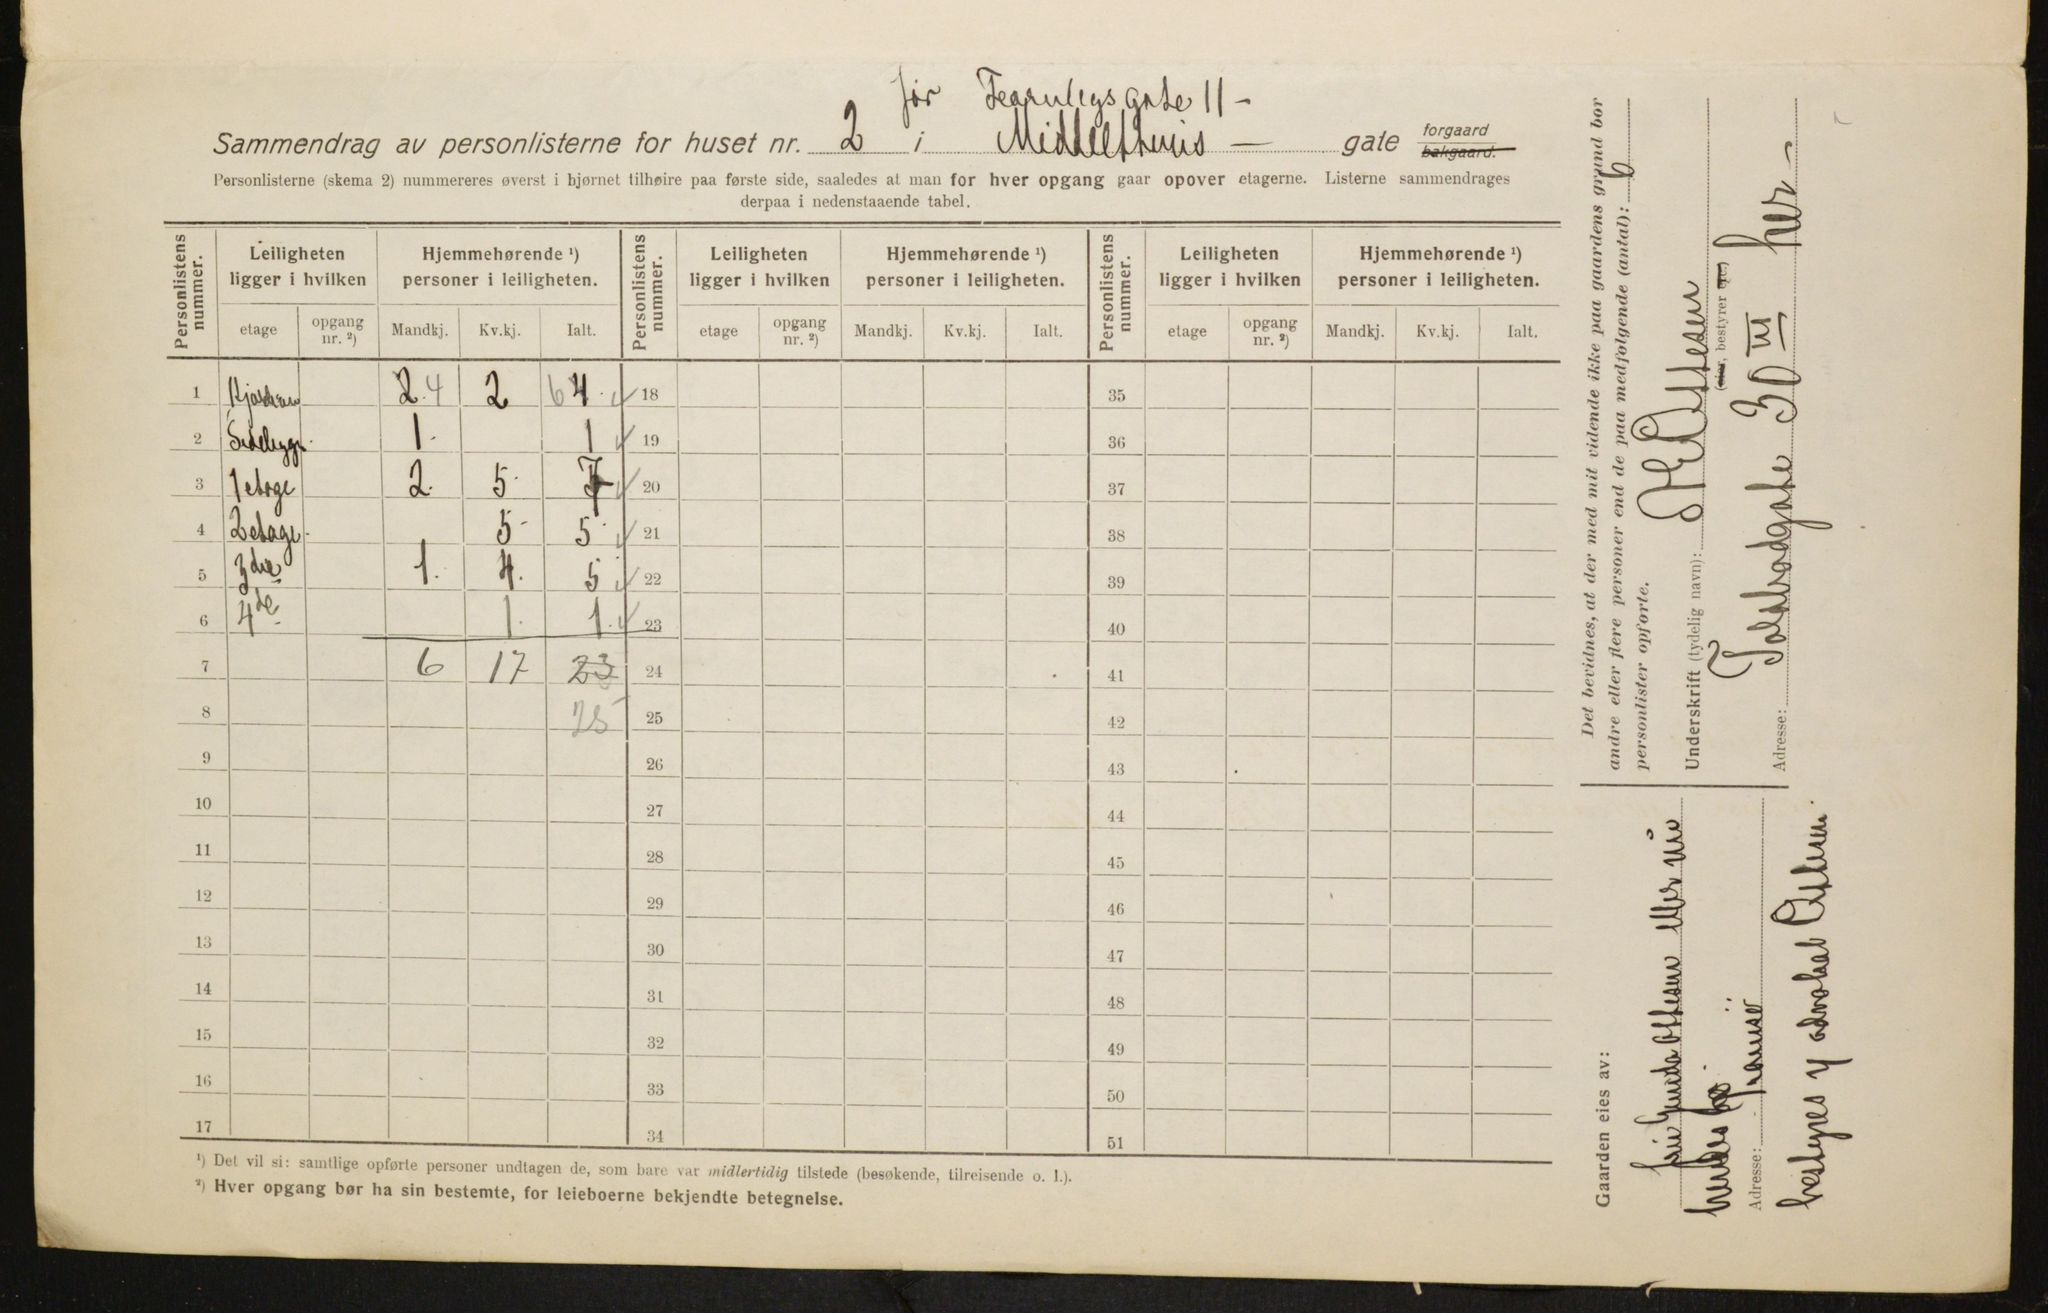 før Fearnleys gate 11 –
Sammendrag av personlisterne for huset nr. 2 i Middelthuns – gate forgaard bakgaard.
Personlisterne (skema 2) nummereres øverst i hjørnet tilhøire paa første side, saaledes at man for hver opgang gaar opover etagerne. Listerne sammendrages
derpaa i nedenstaaende tabel.
Personlistens nummer. Leiligheten ligger i hvilken Hjemmehørende ¹) personer i leiligheten. Personlistens nummer. Leiligheten ligger i hvilken Hjemmehørende ¹) personer i leiligheten. Personlistens nummer. Leiligheten ligger i hvilken Hjemmehørende ¹) personer i leiligheten.
etage opgang nr. ²) Mandkj. Kv.kj. Ialt. etage opgang nr. ²) Mandkj. Kv.kj. Ialt. etage opgang nr. ²) Mandkj. Kv.kj. Ialt.
1 Kjælderen 2. 4 2 6 4. 18 35
2 Sidebygn. 1. 1 19 36
3 1 etage 2. 5. 7 20 37
4 2 etage. 5. 5. 21 38
5 3die 1. 4. 5 22 39
6 4de 1. 1. 23 40
7 6 17 23 24 41
8 25 25 42
9 26 43
10 27 44
11 28 45
12 29 46
13 30 47
14 31 48
15 32 49
16 33 50
17 34 51
¹) Det vil si: samtlige opførte personer undtagen de, som bare var midlertidig tilstede (besøkende, tilreisende o. l.).
²) Hver opgang bør ha sin bestemte, for leieboerne bekjendte betegnelse.
Det bevidnes, at der med mit vidende ikke paa gaardens grund bor
andre eller flere personer end de paa medfølgende (antal): 6
personlister opførte.
Underskrift (tydelig navn): Ottesen
(eier, bestyrer etc)
Adresse: Toldbodgate 30 III her –
Gaarden eies av:
Ottesen eller
Adresse:
bestyres af advokat Ottesen.